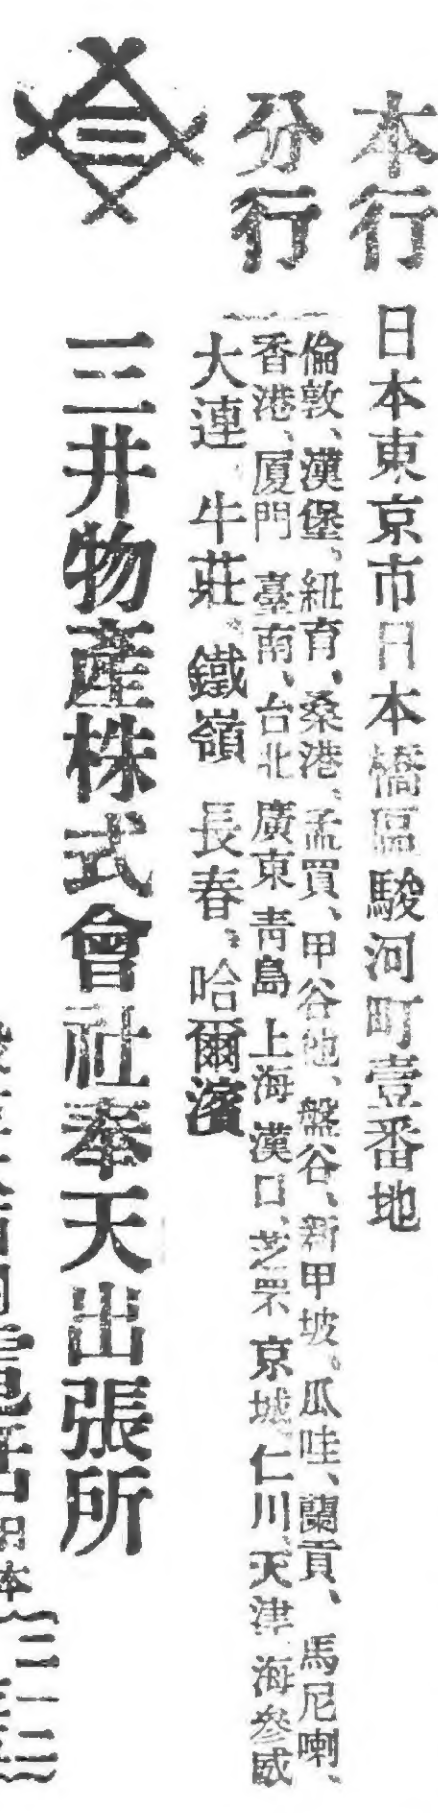 本行 日本東京市日本橋區駿河町壹番地
分行
倫敦、漢堡、紐育、桑港、孟買、甲谷他、盤谷、新甲坡。瓜哇、蘭貢、馬尼喇、
香港、厦門 臺南、台北 廣東 靑島 上海 漢口、芝罘 京城 仁川、天津 海參威
大連、牛莊、鐵嶺 長春、哈爾濱
三井物產株式會社奉天出張所